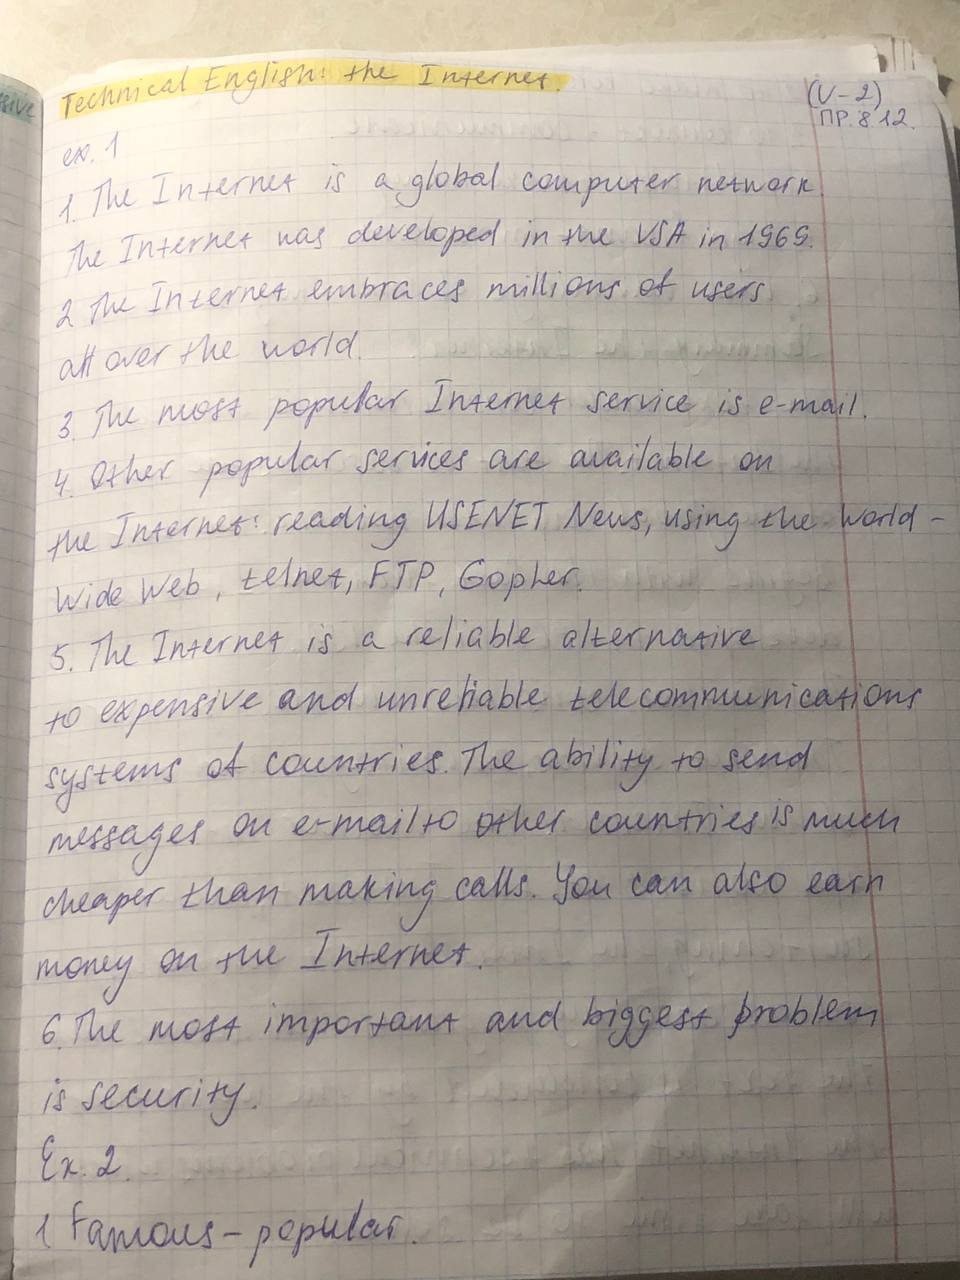 Technical English: the Internet.
(V-2)
ПР. 8.12.
ex. 1
1. The Internet is a global computer network.
The Internet was developed in the USA in 1969.
2 The Internet embraces millions of users
all over the world.
3. The most popular Internet service is e-mail.
4. Other popular services are available on
the Internet: reading USENET News, using the World-
Wide Web, telnet, FTP, Gopher.
5. The Internet is a reliable alternative
to expensive and unreliable telecommunications
systems of countries. The ability to send
messages on e-mail to other countries is much
cheaper than making calls. You can also earn
money on the Internet.
6. The most important and biggest problem
is security.
Ex. 2
1 Famous – popular.